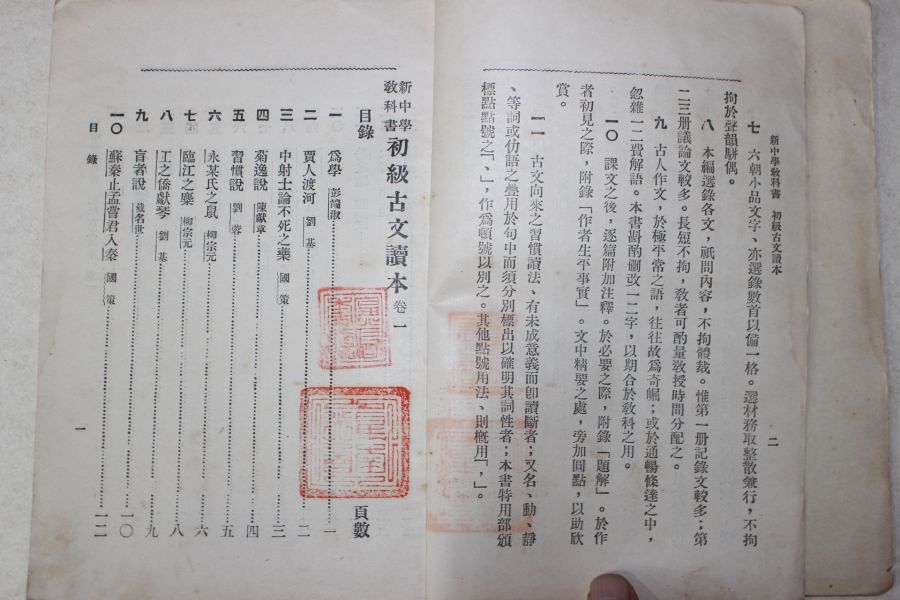 新中學教科書 初級古文讀本
二
七 六朝小品文字、亦選錄數首以備一格。選材務取整散兼行，不拘
拘於聲韻駢偶。
八 本編選錄各文，祇問內容，不拘體裁。惟第一册記錄文較多；第
二三册議論文較多。長短不拘，教者可酌量教授時間分配之。
九 古人作文，於極平常之語，往往故爲奇崛；或於通暢條達之中，
忽雜一二費解語。本書斟酌刪改一二字，以期合於教科之用。
一〇 課文之後，逐篇附加注釋。於必要之際，附錄「題解」。於作
者初見之際，附錄「作者生平事實」。文中精要之處，旁加圓點，以助欣
賞。
一一 古文向來之習慣讀法、有未成意義而卽讀斷者；又名、動、靜
、等詞或仂語之疊用於句中而須分別標出以確明其詞性者；本書特用部頒
標點點號之「、」，作爲頓號以別之。其他點號用法、則概用「，」。
新中學教科書 初級古文讀本 卷一
目錄 頁數
一 爲學 彭端淑 一
二 賈人渡河 劉基 二
三 中射士論不死之藥 國策 三
四 菊逸說 陳獻章 四
五 習慣說 劉蓉 五
六 永某氏之鼠 柳宗元 六
七 臨江之麋 柳宗元 七
八 工之僑獻琴 劉基 八
九 盲者說 戴名世 九
一〇 蘇秦止孟嘗君入秦 國策 一二
目錄
一